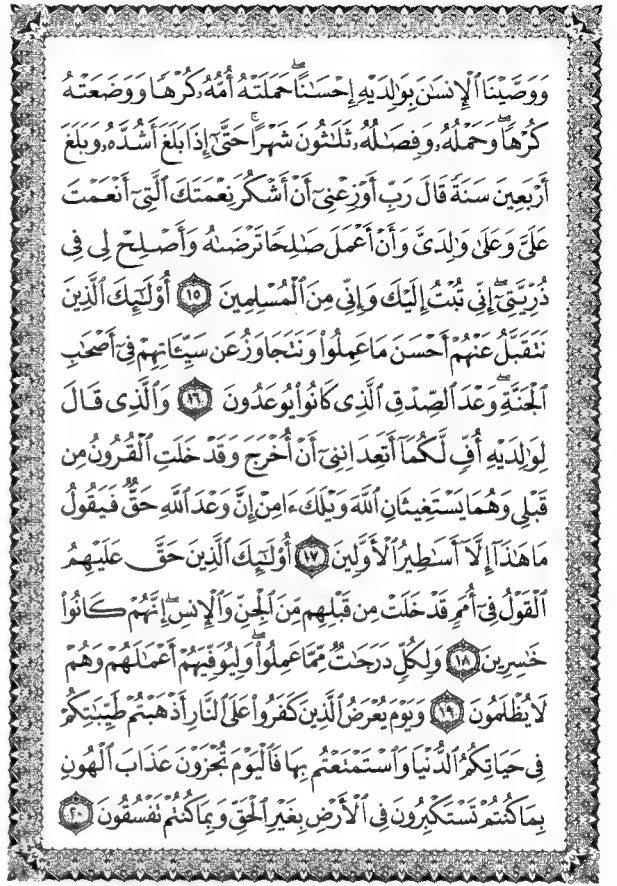 وَوَصَّيْنَا ٱلْإِنسَٰنَ بِوَٰلِدَيْهِ إِحْسَٰنًاۖ حَمَلَتْهُ أُمُّهُۥ كُرْهًا وَوَضَعَتْهُ
كُرْهًاۖ وَحَمْلُهُۥ وَفِصَٰلُهُۥ ثَلَٰثُونَ شَهْرًاۚ حَتَّىٰٓ إِذَا بَلَغَ أَشُدَّهُۥ وَبَلَغَ
أَرْبَعِينَ سَنَةً قَالَ رَبِّ أَوْزِعْنِىٓ أَنْ أَشْكُرَ نِعْمَتَكَ ٱلَّتِىٓ أَنْعَمْتَ
عَلَىَّ وَعَلَىٰ وَٰلِدَىَّ وَأَنْ أَعْمَلَ صَٰلِحًا تَرْضَىٰهُ وَأَصْلِحْ لِى فِى
ذُرِّيَّتِىٓۖ إِنِّى تُبْتُ إِلَيْكَ وَإِنِّى مِنَ ٱلْمُسْلِمِينَ ١٥ أُو۟لَٰٓئِكَ ٱلَّذِينَ
نَتَقَبَّلُ عَنْهُمْ أَحْسَنَ مَا عَمِلُوا۟ وَنَتَجَاوَزُ عَن سَيِّـَٔاتِهِمْ فِىٓ أَصْحَٰبِ
ٱلْجَنَّةِۖ وَعْدَ ٱلصِّدْقِ ٱلَّذِى كَانُوا۟ يُوعَدُونَ ١٦ وَٱلَّذِى قَالَ
لِوَٰلِدَيْهِ أُفٍّ لَّكُمَآ أَتَعِدَانِنِىٓ أَنْ أُخْرَجَ وَقَدْ خَلَتِ ٱلْقُرُونُ مِن
قَبْلِى وَهُمَا يَسْتَغِيثَانِ ٱللَّهَ وَيْلَكَ ءَامِنْ إِنَّ وَعْدَ ٱللَّهِ حَقٌّ فَيَقُولُ
مَا هَٰذَآ إِلَّآ أَسَٰطِيرُ ٱلْأَوَّلِينَ ١٧ أُو۟لَٰٓئِكَ ٱلَّذِينَ حَقَّ عَلَيْهِمُ
ٱلْقَوْلُ فِىٓ أُمَمٍ قَدْ خَلَتْ مِن قَبْلِهِم مِّنَ ٱلْجِنِّ وَٱلْإِنسِۖ إِنَّهُمْ كَانُوا۟
خَٰسِرِينَ ١٨ وَلِكُلٍّ دَرَجَٰتٌ مِّمَّا عَمِلُوا۟ۖ وَلِيُوَفِّيَهُمْ أَعْمَٰلَهُمْ وَهُمْ
لَا يُظْلَمُونَ ١٩ وَيَوْمَ يُعْرَضُ ٱلَّذِينَ كَفَرُوا۟ عَلَى ٱلنَّارِ أَذْهَبْتُمْ طَيِّبَٰتِكُمْ
فِى حَيَاتِكُمُ ٱلدُّنْيَا وَٱسْتَمْتَعْتُم بِهَا فَٱلْيَوْمَ تُجْزَوْنَ عَذَابَ ٱلْهُونِ
بِمَا كُنتُمْ تَسْتَكْبِرُونَ فِى ٱلْأَرْضِ بِغَيْرِ ٱلْحَقِّ وَبِمَا كُنتُمْ تَفْسُقُونَ ٢٠